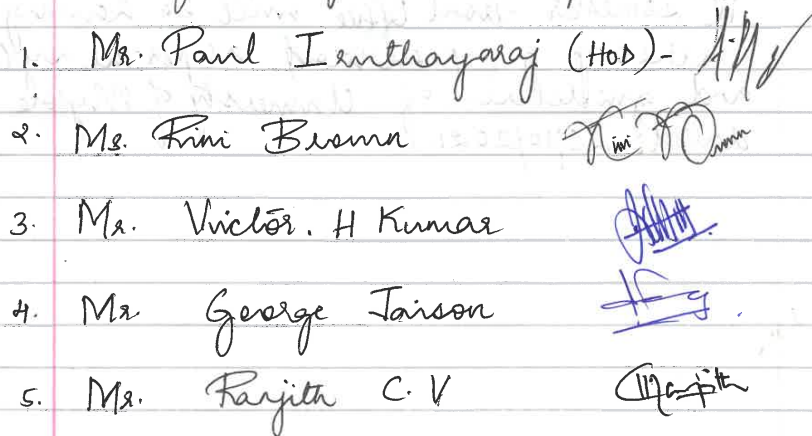 1. Mr. Paul Iruthayaraj (HOD) -
2. Ms. Rini Brown
3. Mr. Victor. H Kumar
4. Mr. George Jaison
5. Mr. Ranjith C. V